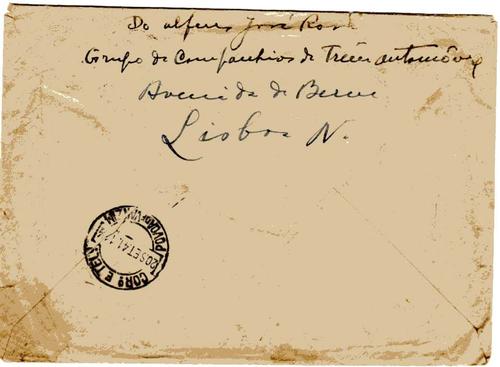 Do alferes José Rosa
Grupo de Companhias de Trem automóvel
Avenida de Berne
Lisboa N.
CORº E TELº
20 SET 41
POVOA DE VARZIM